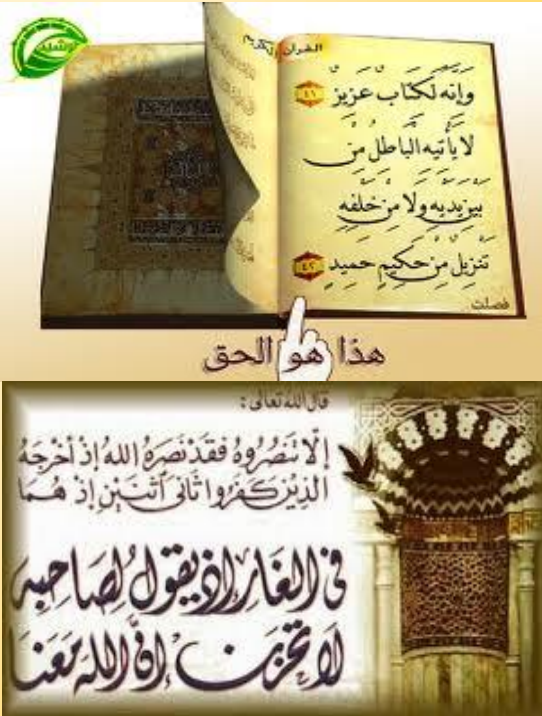 القرآن الكريم
وَإِنَّهُ لَكِتَابٌ عَزِيزٌ ٤١
لَا يَأْتِيهِ الْبَاطِلُ مِن
بَيْنِ يَدَيْهِ وَلَا مِنْ خَلْفِهِ
تَنْزِيلٌ مِنْ حَكِيمٍ حَمِيدٍ ٤٢
فصلت
هذا هو الحق
قال الله تعالى:
إِلَّا تَنْصُرُوهُ فَقَدْ نَصَرَهُ اللهُ إِذْ أَخْرَجَهُ
الَّذِينَ كَفَرُوا ثَانِيَ اثْنَيْنِ إِذْ هُمَا
فِي الْغَارِ إِذْ يَقُولُ لِصَاحِبِهِ
لَا تَحْزَنْ إِنَّ اللهَ مَعَنَا